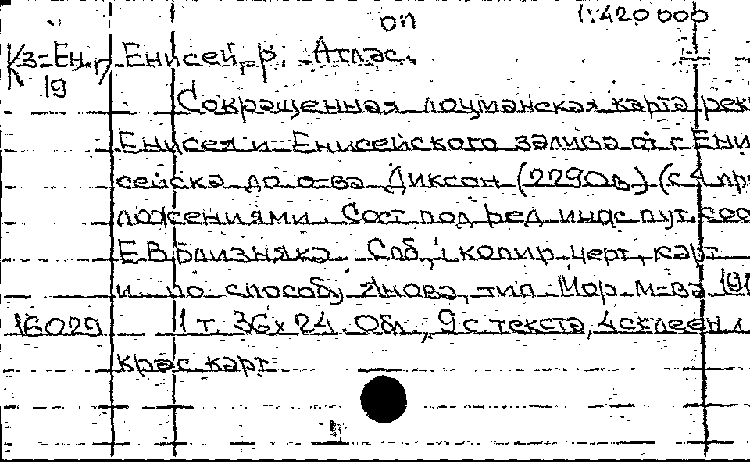 оп 1:420 000
К3-Ен.р. Енисей, р. Атлас.
19
Сокращенная лоцманская карта рек
Енисея и Енисейского залива от г. Ени
сейска до о-ва Диксон (2290в.) (с 4 пр
ложениями. Сост. под ред. инж. пут. соо
Е.В. Близняка. Спб., копир. черт., карт
и по способу Янова, тип. Мор. м-ва, 191
16029 1 т. 36х24. Обл., 9 с. текста, 4 склеен л.
крас. карт.